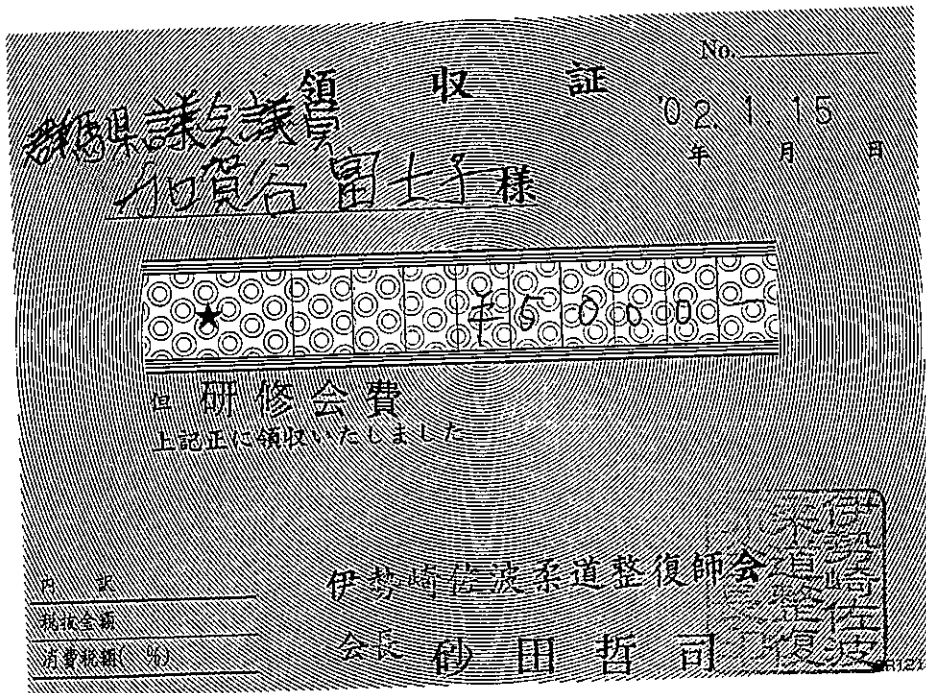 No.
領収証
'02.1.15
年 月 日
群馬県議会議員
加賀谷富士子様
★ ¥5000-
但 研修会費
上記正に領収いたしました
内 訳
税抜金額
消費税額( %)
伊勢崎佐波柔道整復師会
会長 砂田哲司
伊勢崎佐波
柔道整復